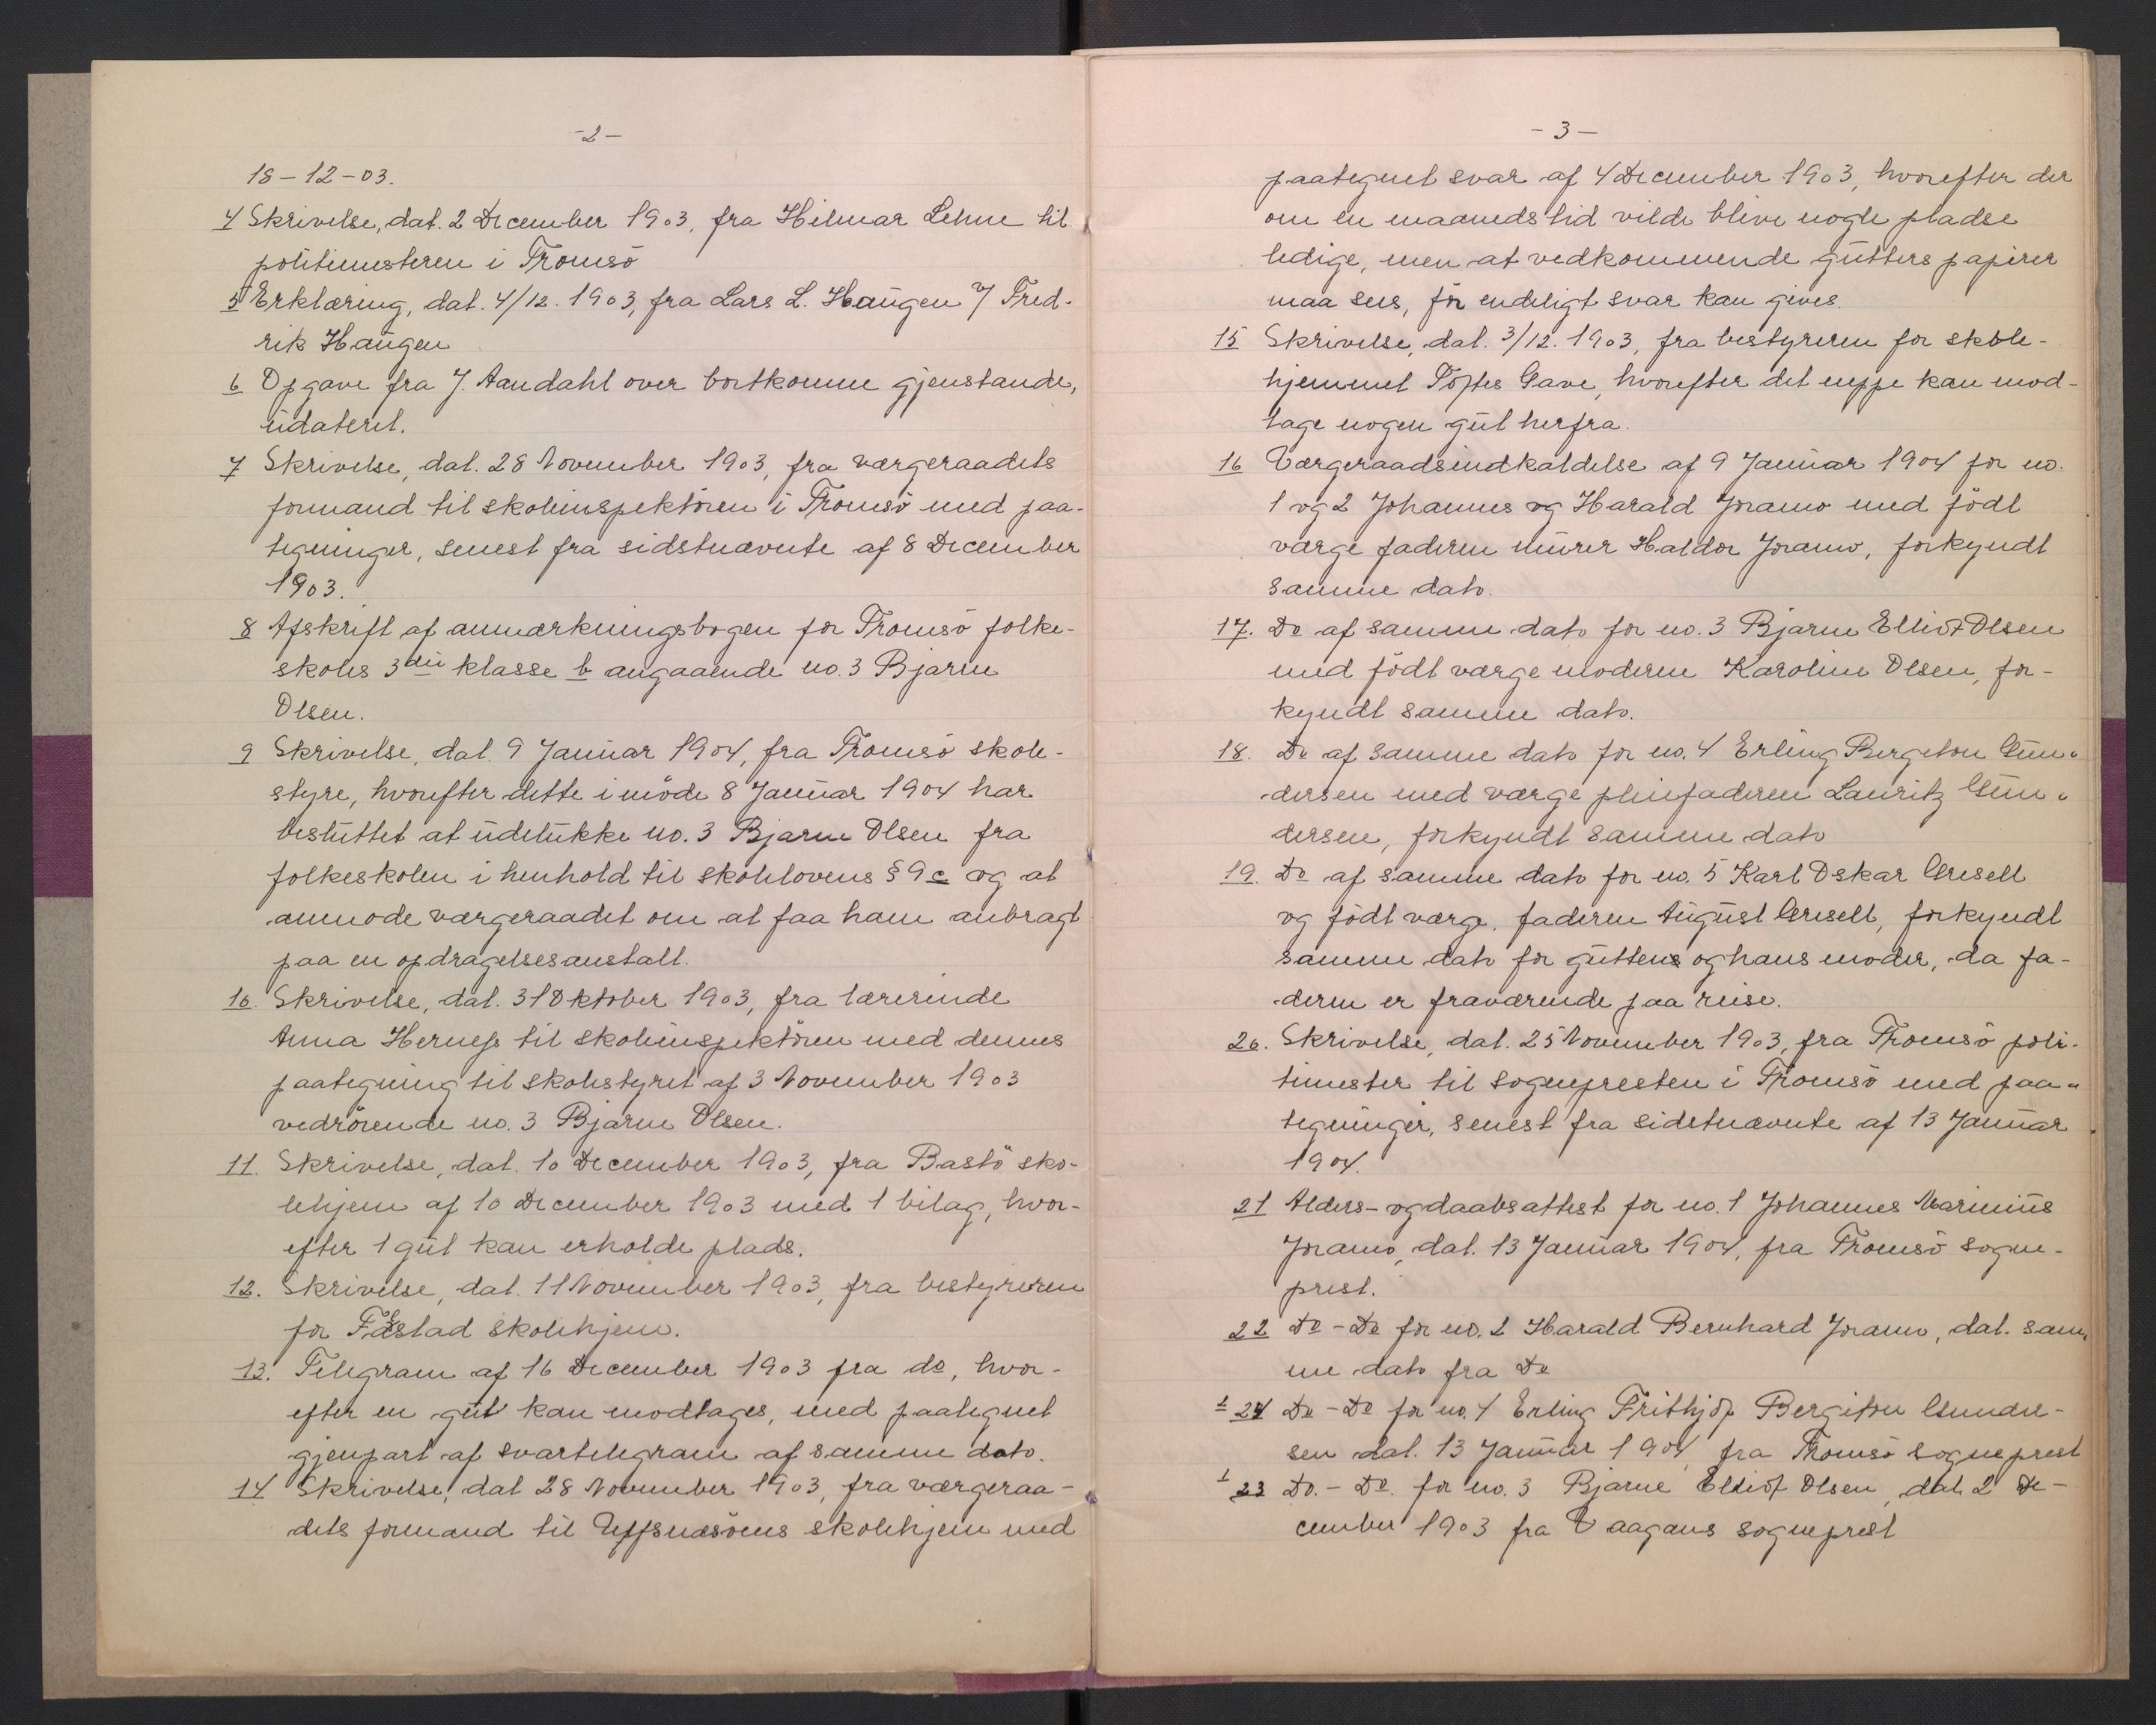 -2-
18-12-03.
4 Skrivelse, dat. 2 December 1903, fra Hilmar Lehne til
politimesteren i Tromsö
5 Erklæring, dat. 4/12. 1903, fra Lars L. Haugen v/ Fred-
rik Haugen
6 Opgave fra J. Aandahl over bortkomne gjenstande,
udateret.
7 Skrivelse, dat. 28 November 1903, fra værgeraadets
formand til skoleinspektören i Tromsö med paa-
tegninger, senest fra sidstnævnte af 8 December
1903.
8 Afskrift af anmærkningsbogen for Tromsö folke-
skoles 3die klasse b angaaende no. 3 Bjarne
Olsen.
9 Skrivelse, dat. 9 Januar 1904, fra Tromsö skole-
styre, hvorefter dette i möde 8 Januar 1904 har
besluttet at udelukke no. 3 Bjarne Olsen fra
folkeskolen i henhold til skolelovens § 9 c og at
anmode værgeraadet om at faa ham anbragt
paa en opdragelsesanstalt.
10. Skrivelse, dat. 31 Oktober 1903, fra lærerinde
Anna Herness til skoleinspektören med dennes
paategning til skolestyret af 3 November 1903
vedrörende no. 3 Bjarne Olsen.
11. Skrivelse, dat. 10 December 1903, fra Bastö sko-
lehjem af 10 December 1903 med 1 bilag, hvor-
efter 1 gut kan erholde plads.
12. Skrivelse, dat. 11 November 1903, fra bestyreren
for Falstad skolehjem.
13. Telegram af 16 December 1903 fra do, hvor-
efter en gut kan modtages, med paategnet
gjenpart af svartelegram af samme dato.
14 Skrivelse, dat 28 November 1903, fra værgeraa-
dets formand til Ulfsnesöens skolehjem med
-3-
paategnet svar af 4 December 1903, hvorefter der
om en maaneds tid vilde blive nogle pladse
ledige, men at vedkommende gutters papirer
maa sees, för endeligt svar kan gives.
15 Skrivelse, dat. 3/12. 1903, fra bestyreren for skole-
hjemmet Toftes Gave, hvorefter det neppe kan mod-
tage nogen gut herfra.
16 Værgeraadsindkaldelse af 9 Januar 1904 for no.
1 og 2 Johannes og Harald Joramo med födt
værge faderen murer Haldor Joramo, forkyndt
samme dato.
17. Do af samme dato for no. 3 Bjarne Elliot Olsen
med födt værge moderen Karoline Olsen, for-
kyndt samme dato.
18. Do af samme dato for no. 4 Erling Bergiton Gun-
dersen med værge pleiefaderen Lauritz Gun-
dersen, forkyndt samme dato
19. Do af samme dato for no. 5 Karl Oskar Gresell
og födt værge, faderen August Gresell, forkyndt
samme dato for gutten og hans moder, da fa-
deren er fraværende paa reise.
20. Skrivelse, dat. 25 November 1903, fra Tromsö poli-
timester til sognepresten i Tromsö med paa-
tegninger, senest fra sidstnævnte af 13 Januar
1904.
21 Alders- og daabsattest for no. 1 Johannes Marinius
Joramo, dat. 13 Januar 1904, fra Tromsö sogne-
prest.
22 Do - Do for no. 2 Harald Bernhard Joramo, dat. sam-
me dato fra Do
24 Do - Do for no. 4 Erling Frithjof Bergiton Gunder-
sen dat. 13 Januar 1904, fra Tromsö sogneprest
23 Do. - Do. for no. 3 Bjarne Elliot Olsen, dat. 2 De-
cember 1903 fra Vaagans sogneprest